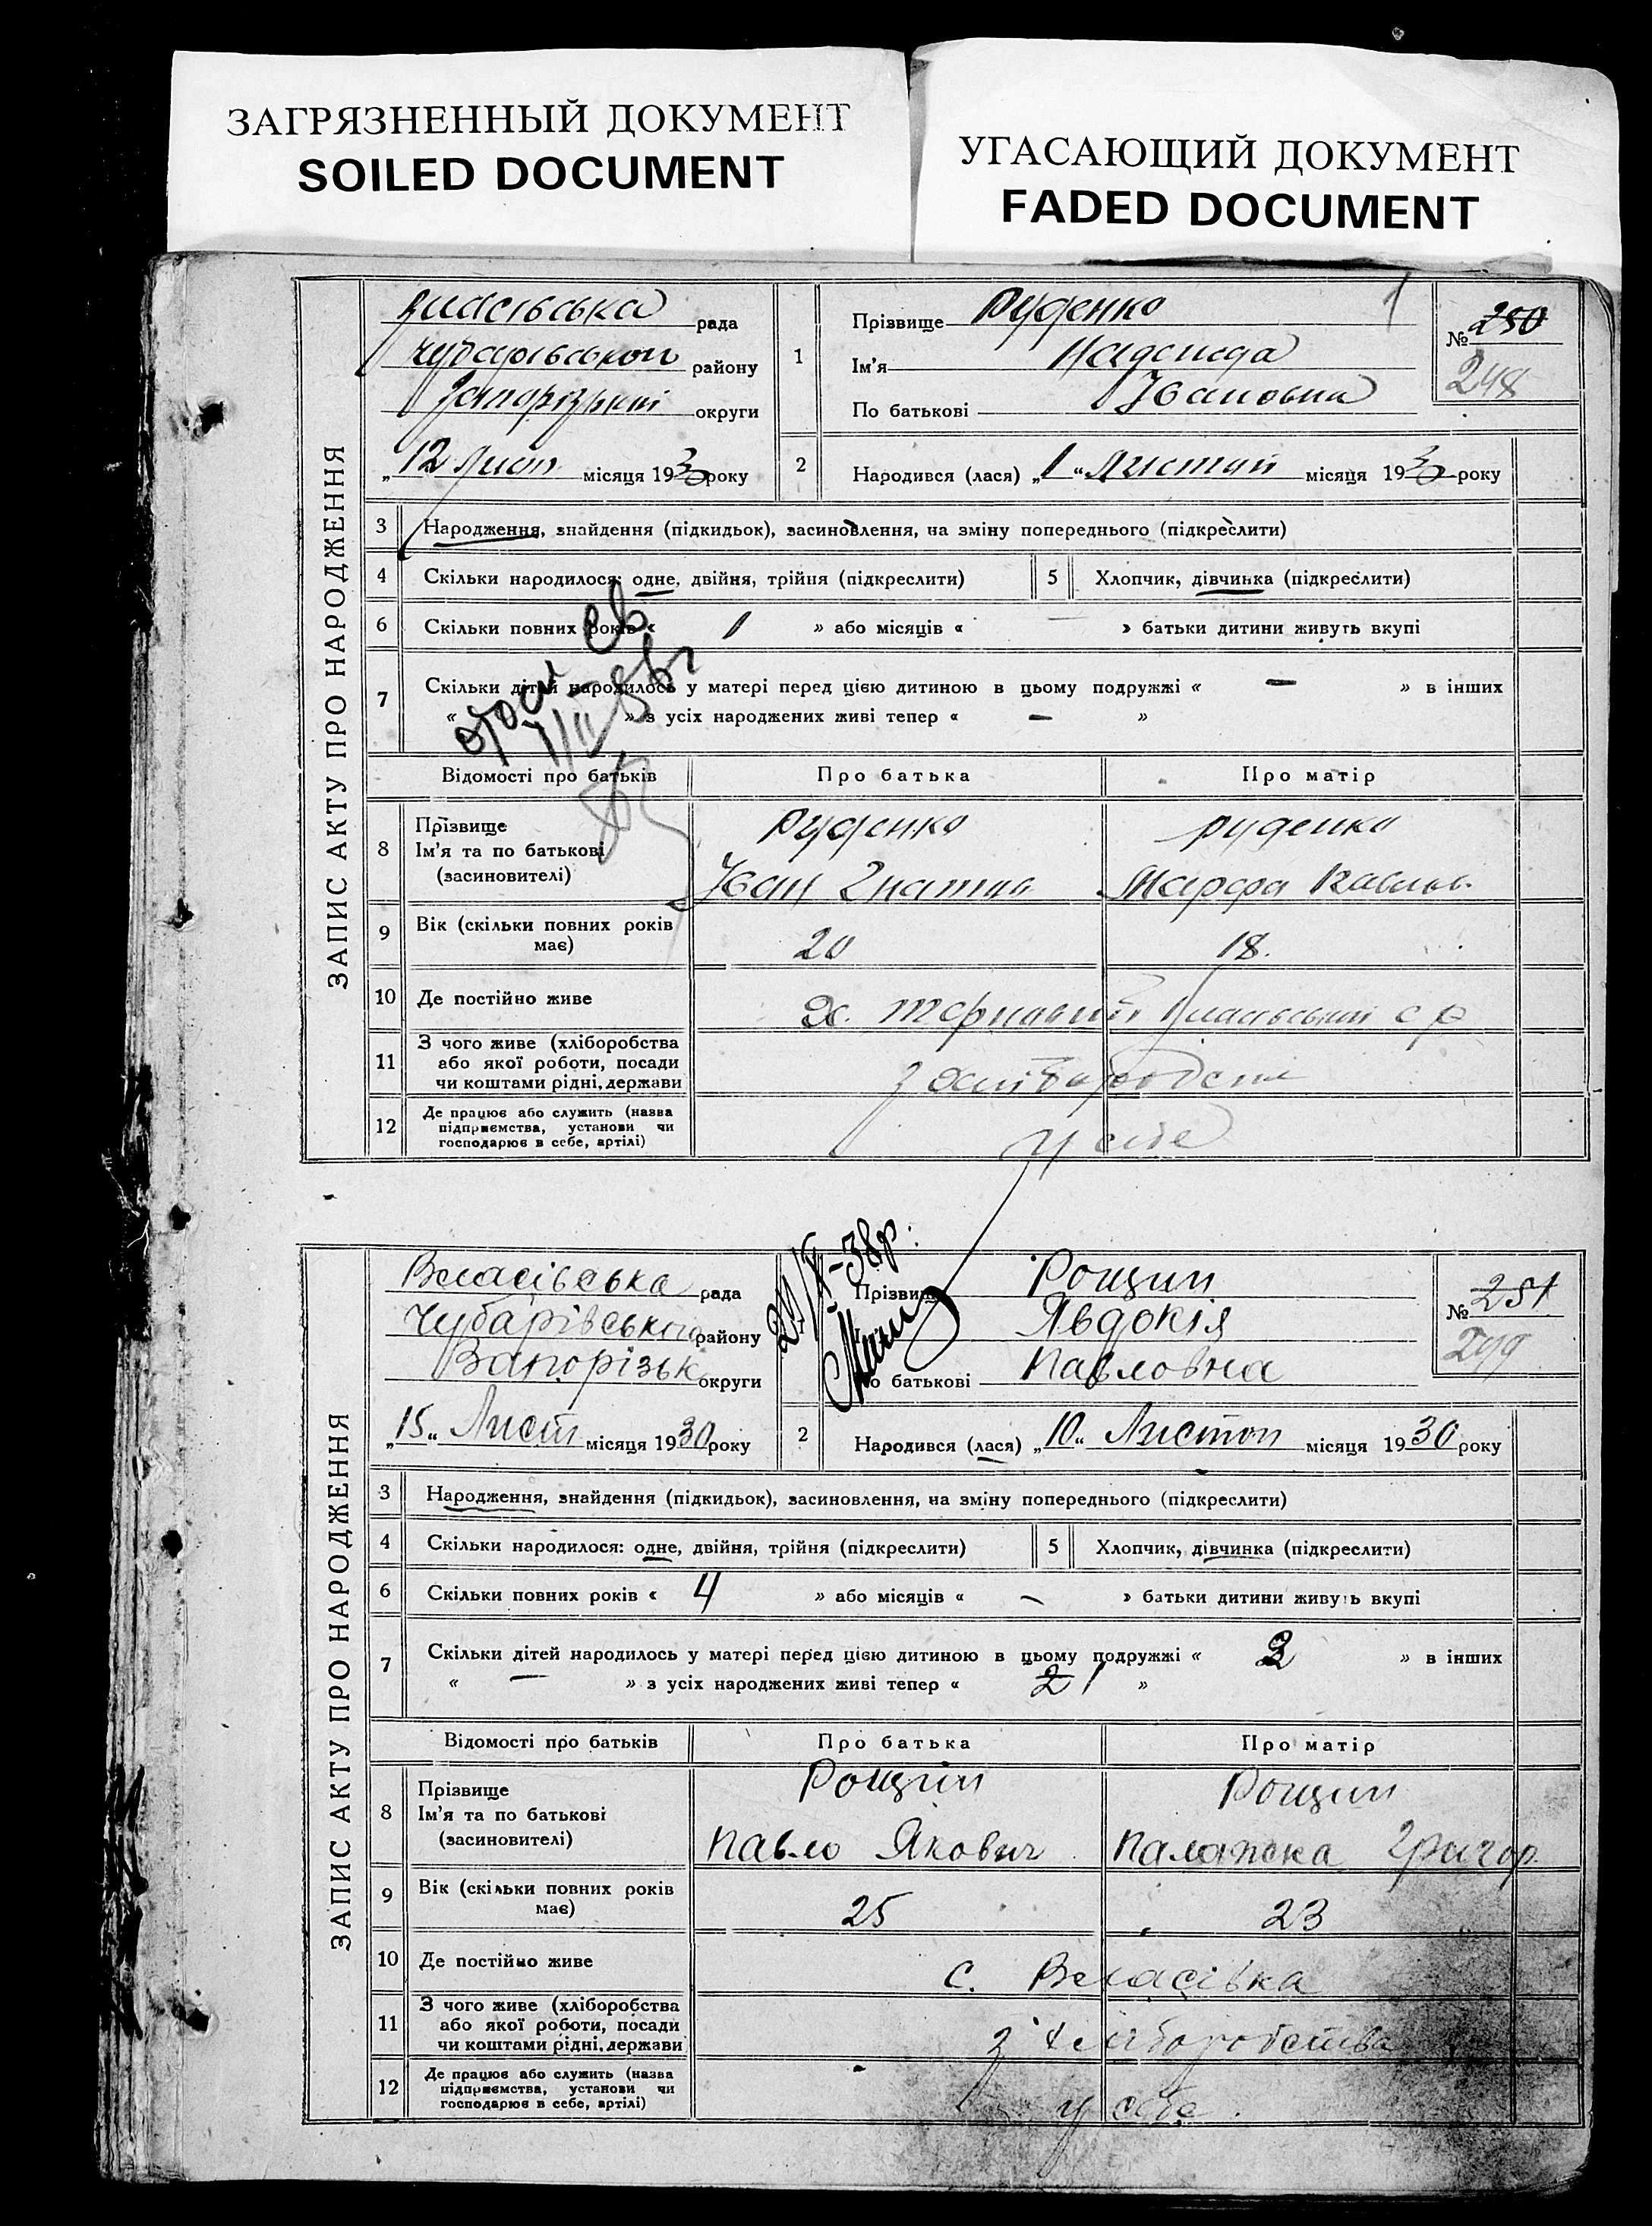 ЗАГРЯЗНЕННЫЙ ДОКУМЕНТ
SOILED DOCUMENT
УГАСАЮЩИЙ ДОКУМЕНТ
FADED DOCUMENT
ЗАПИС АКТУ ПРО НАРОДЖЕННЯ
Власівська рада
Чубарівської району
округи
„12 Лист місяця 1930 року
1
Прізвище Руденко
Ім'я Надежда
По батькові Івановна
№ 250
248
2 Народився (лася) „1“ Листоп місяця 1930 року
3 Народження, знайдення (підкидьок), засиновлення, на зміну попереднього (підкреслити)
4 Скільки народилося: одне, двійня, трійня (підкреслити)
5 Хлопчик, дівчинка (підкреслити)
6 Скільки повних років « 1 » або місяців « — » батьки дитини живуть вкупі
7 Скільки дітей народилось у матері перед цією дитиною в цьому подружжі « — » в інших
« » з усіх народжених живі тепер « — »
Відомості про батьків
Про батька
Про матір
8 Прізвище
Ім'я та по батькові
(засиновителі)
Руденко
Іван Гнатів
Руденко
Марфа Павлов.
9 Вік (скільки повних років має)
20
18.
10 Де постійно живе
х. с р
11 З чого живе (хліборобства
або якої роботи, посади
чи коштами рідні, держави
з
12 Де працює або служить (назва
підприємства, установи чи
господарює в себе, артілі)
у себе
ЗАПИС АКТУ ПРО НАРОДЖЕННЯ
Власівська рада
Чубарівського району
Запорізьк округи
„15“ Лист місяця 1930 року
Прізвище Рощин
Явдокія
По батькові Павловна
№ 251
249
2 Народився (лася) „10“ Листоп місяця 1930 року
3 Народження, знайдення (підкидьок), засиновлення, на зміну попереднього (підкреслити)
4 Скільки народилося: одне, двійня, трійня (підкреслити)
5 Хлопчик, дівчинка (підкреслити)
6 Скільки повних років « 4 » або місяців « — » батьки дитини живуть вкупі
7 Скільки дітей народилось у матері перед цією дитиною в цьому подружжі « 2 » в інших
« — » з усіх народжених живі тепер « 2 1 »
Відомості про батьків
Про батька
Про матір
8 Прізвище
Ім'я та по батькові
(засиновителі)
Рощин
Павло Якович
Рощин
Палажка Григор.
9 Вік (скільки повних років має)
25
23
10 Де постійно живе
с. Власівка
11 З чого живе (хліборобства
або якої роботи, посади
чи коштами рідні, держави
з хліборобства
12 Де працює або служить (назва
підприємства, установи чи
господарює в себе, артілі)
у себе.